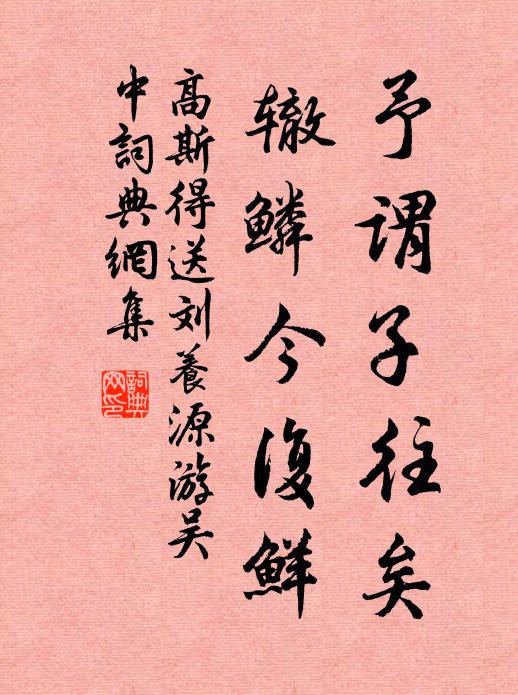 予谓子往矣
辙鳞今复鲜
高斯得送刘養源游吴
中詞典網集
詞典
网印